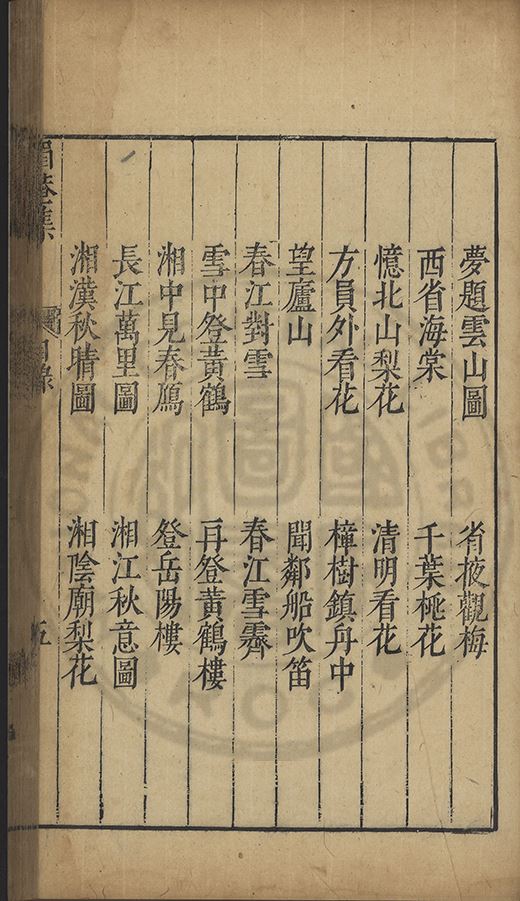 夢題雲山圖　省掖觀梅
西省海棠　千葉桃花
憶北山梨花　清明看花
方員外看花　樟樹鎮舟中
望廬山　聞鄰船吹笛
春江對雪　春江雪霽
雪中登黃鶴　再登黃鶴樓
湘中見春鴈　登岳陽樓
長江萬里圖　湘江秋意圖
湘漢秋晴圖　湘陰廟梨花
眉菴集　目錄　五